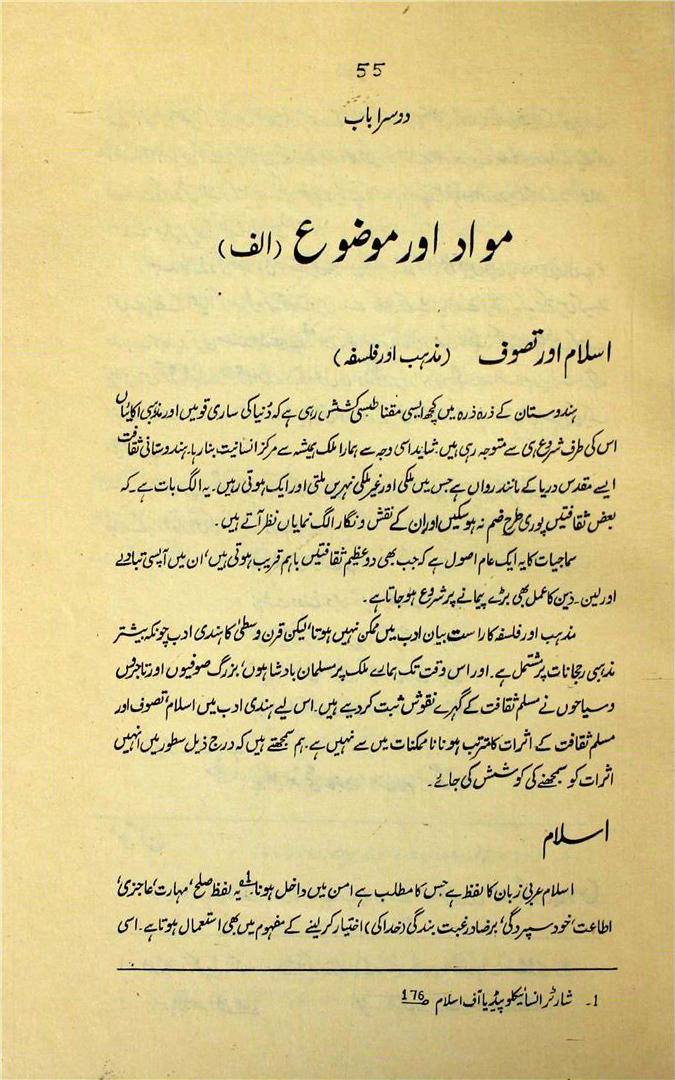 55
دوسرا باب
مواد اور موضوع (الف)
اسلام اور تصوف (مذہب اور فلسفہ)
ہندوستان کے ذرہ ذرہ میں کچھ ایسی مقناطیسی کشش رہی ہے کہ دُنیا کی ساری قومیں اور مذہبی اکائیاں
اس کی طرف شروع ہی سے متوجہ رہی ہیں۔ شاید اسی وجہ سے ہمارا ملک ہمیشہ سے مرکز انسانیت بنا رہا۔ ہندوستانی ثقافت
ایسے مقدس دریا کے مانند رواں ہے جس میں ملکی اور غیر ملکی نہریں ملتی اور ایک ہوتی رہیں۔ یہ الگ بات ہے۔ کہ
بعض ثقافتیں پوری طرح ضم نہ ہو سکیں اور ان کے نقش و نگار الگ نمایاں نظر آتے ہیں۔
سماجیات کا یہ ایک عام اصول ہے کہ جب بھی دو عظیم ثقافتیں باہم قریب ہوتی ہیں، ان میں آپسی تبادلے
اور لین۔ دین کا عمل بھی بڑے پیمانے پر شروع ہو جاتا ہے۔
مذہب اور فلسفہ کا راست بیان ادب میں ممکن نہیں ہوتا، لیکن قرن وسطیٰ کا ہندی ادب چونکہ بیشتر
مذہبی رجحانات پر مشتمل ہے۔ اور اس وقت تک ہمارے ملک پر مسلمان بادشاہوں، بزرگ صوفیوں اور تاجروں
و سیاحوں نے مسلم ثقافت کے گہرے نقوش ثبت کر دیے ہیں۔ اس لیے ہندی ادب میں اسلام، تصوف اور
مسلم ثقافت کے اثرات کا مترتب ہونا ناممکنات میں سے نہیں ہے۔ ہم سمجھتے ہیں کہ درج ذیل سطور میں انہیں
اثرات کو سمجھنے کی کوشش کی جائے۔
اسلام
اسلام عربی زبان کا لفظ ہے جس کا مطلب ہے امن میں داخل ہونا۱؎ یہ لفظ صلح، مہارت، عاجزی،
اطاعت، خود سپردگی، برضا و رغبت بندگی (خدا کی) اختیار کر لینے کے مفہوم میں بھی استعمال ہوتا ہے۔ اسی
1۔ شارٹر انسائیکلوپیڈیا آف اسلام صـ176